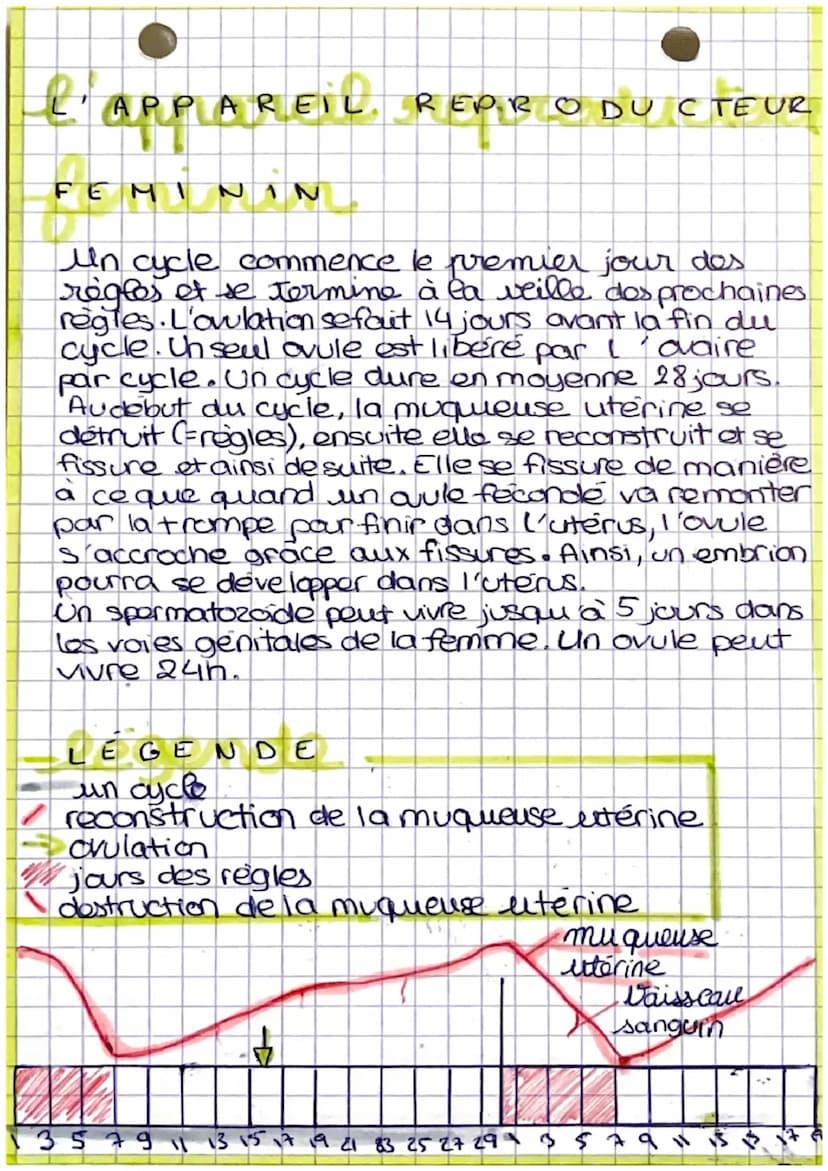 L'APPAREIL REPRODUCTEUR
FEMININ
Un cycle commence le premier jour des
règles et se termine à la veille des prochaines
règles. L'ovulation se fait 14 jours avant la fin du
cycle. Un seul ovule est libéré par l'ovaire
par cycle. Un cycle dure en moyenne 28 jours.
Au début du cycle, la muqueuse utérine se
détruit (=règles), ensuite elle se reconstruit et se
fissure et ainsi de suite. Elle se fissure de manière
à ce que quand un ovule fécondé va remonter
par la trompe pour finir dans l'utérus, l'ovule
s'accroche grâce aux fissures. Ainsi, un embrion
pourra se développer dans l'utérus.
Un spermatozoïde peut vivre jusqu'à 5 jours dans
les voies génitales de la femme. Un ovule peut
vivre 24h.
LÉGENDE
un cycle
reconstruction de la muqueuse utérine
ovulation
jours des règles
destruction de la muqueuse utérine
muqueuse
utérine
Vaisseau
sanguin
1 3 5 7 9 11 13 15 17 19 21 23 25 27 29 1 3 5 7 9 11 13 15 17